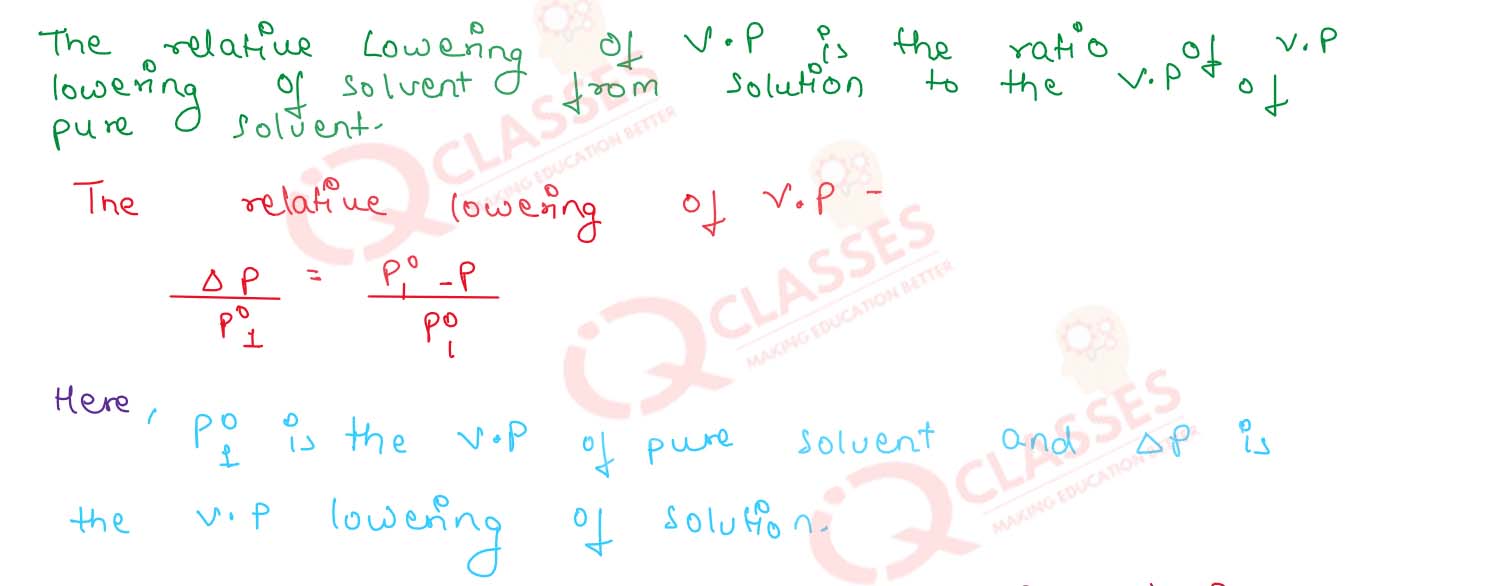 The relative Lowering of V.P is the ratio of V.P
lowering of solvent from solution to the V.P of
pure solvent.
The relative lowering of V.P -
ΔP / P⁰₁ = P⁰₁ - P / P⁰₁
Here, P⁰₁ is the V.P of pure solvent and ΔP is
the V.P lowering of solution.
iQ CLASSES
MAKING EDUCATION BETTER
iQ CLASSES
MAKING EDUCATION BETTER
iQ CLASSES
MAKING EDUCATION BETTER